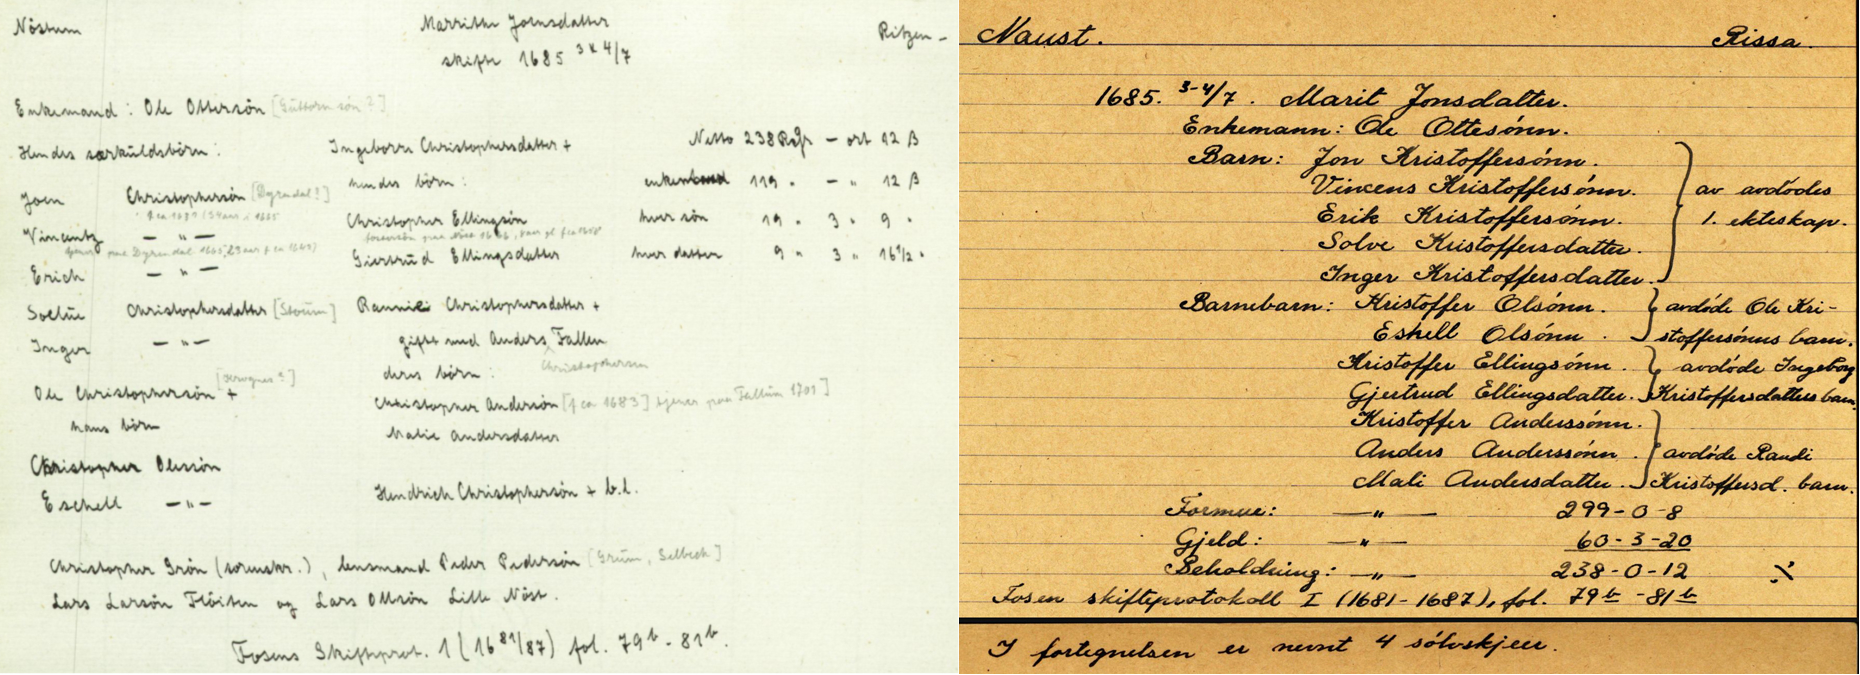 Nöstum
Marrithe Joensdatter
Ritzen -
skifte 1685 3 & 4/7
Enkemand : Ole Ottersön [Guttormsön ?]
Hendes særkuldsbörn :
Joen Christophersön [Dyrendal ?]
Vincentz — " —
Erich — " —
Soelue Christophersdatter [Stoum]
Inger — " —
Ole Christophersön +
hans börn
Christopher Olessön
Eschell — " —
Ingeborre Christophersdatter +
hendes börn :
Christopher Ellingsön
Giertrud Ellingsdatter
Rannie Christophersdatter +
gift med Anders Fallen
Christophersen
deres börn :
Christopher Andersön [f ca 1683] tjener paa Fallum 1701]
Malie Andersdatter
Hendrich Christophersön + b.l.
Netto 238 Rdr — ort 12 β
enkemand 119 " — " 12 β
hver sön 19 " 3 " 9 "
hver datter 9 " 3 " 16 1/2 "
Christopher Grön (sorenskr.), lensmand Peder Pedersön [Grum, Selbech]
Lars Larsön Flöiten og Lars Ollsön Lille Nöst.
Fosens Skifteprot. 1 (1681/87) fol. 79b - 81b.
Naust. Rissa.
1685. 3-4/7. Marit Jonsdatter.
Enkemann: Ole Ottesönn.
Barn: Jon Kristoffersönn.
Vincens Kristoffersönn.
Erik Kristoffersönn.
Solve Kristoffersdatter.
Inger Kristoffersdatter.
av avdödes
1. ekteskap.
Barnebarn: Kristoffer Olsönn.
Eskell Olsönn.
avdöde Ole Kri-
stoffersönns barn.
Kristoffer Ellingsönn.
Gjertrud Ellingsdatter.
avdöde Ingeborg
Kristoffersdatters barn.
Kristoffer Anderssönn.
Anders Anderssönn.
Mali Andersdatter.
avdöde Randi
Kristoffersd. barn.
Formue: — " — 299-0-8
Gjeld: — " — 60-3-20
Beholdning: — " — 238-0-12
Fosen skifteprotokoll I (1681-1687), fol. 79b - 81b
I fortegnelsen er nevnt 4 sölvskjeer.